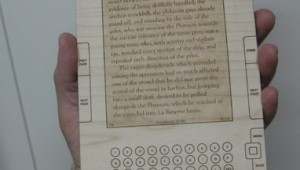 evidence of being skilfully handled, the
anchor a-cockbill, the jib-boom guys already
eased off, and standing by the side of the
pilot, who was steering the Pharaon towards
the narrow entrance of the inner port, was a
young man, who, with activity and vigilant
eye, watched every motion of the ship, and
repeated each direction of the pilot.
The vague disquietude which prevailed
among the spectators had so much affected
one of the crowd that he did not await the
arrival of the vessel in harbor, but jumping
into a small skiff, desired to be pulled
alongside the Pharaon, which he reached as
she rounded into La Réserve basin.
NEXT
PAGE
PREV
PAGE
HOME
NEXT
PAGE
MENU
BACK